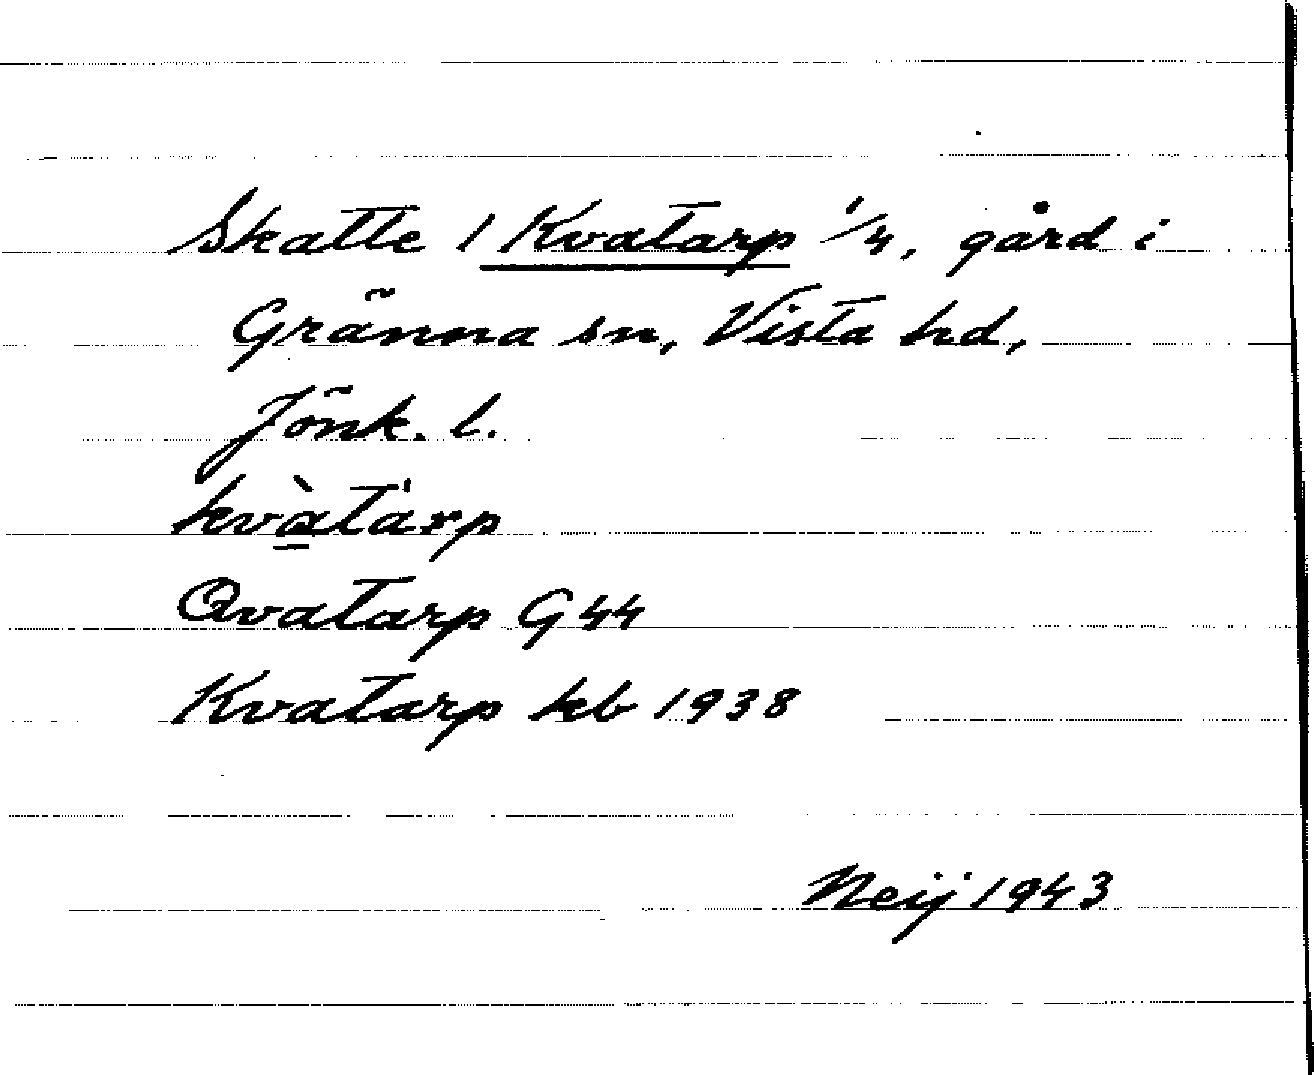 Skatte / Kvatarp 1/4, gård i
Gränna sn, Vista hd,
Jönk. l.
kvàtàrp
Qvatarp G 44
Kvatarp kb 1938
Neij 1943